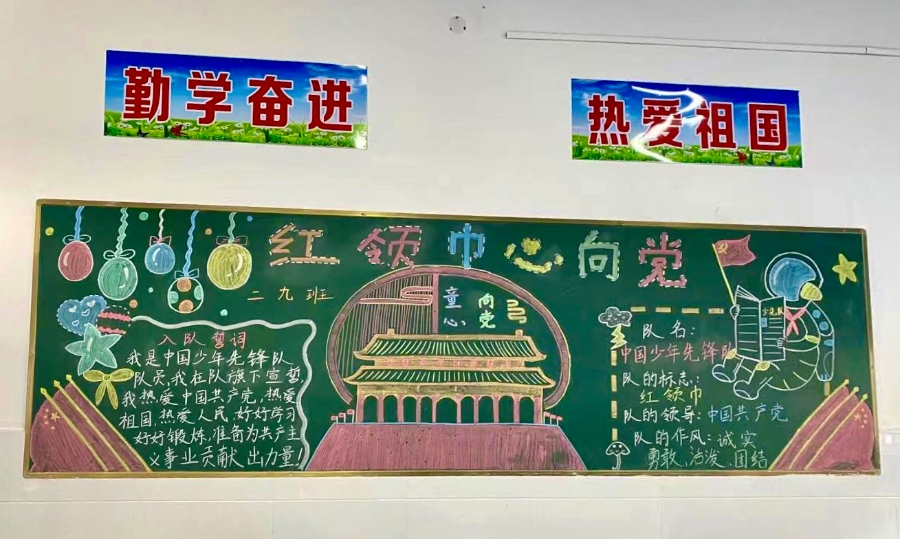 勤学奋进
热爱祖国
红领巾心向党
二九班
童心
向党
入队誓词
我是中国少年先锋队
队员,我在队旗下宣誓,
我热爱中国共产党,热爱
祖国,热爱人民,好好学习
好好锻炼,准备为共产主
义事业贡献出力量!
少先队
队名:
中国少年先锋队
队的标志:
红领巾
队的领导:中国共产党
队的作风:诚实
勇敢、活泼、团结